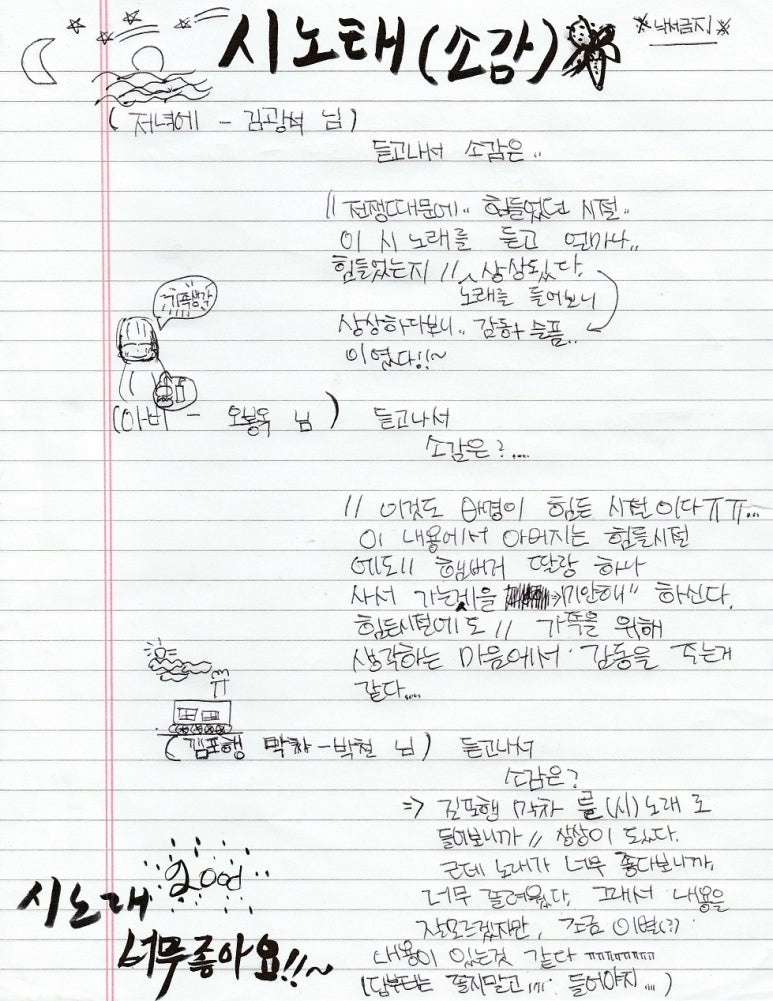 시노래 (소감)
※낙서금지※
( 저녁에 - 김광석 님 )
듣고나서 소감은..
// 전쟁때문에.. 힘들었던 시절..
이 시 노래를 듣고 얼마나..
힘들었는지 // 상상됬다.
노래를 들어보니
가족생각
상상하다보니.. 감동+슬픔..
이였다!!~
(아비 - 오봉옥 님 ) 듣고나서
소감은?....
// 이것도 배경이 힘든 시절이다ㅠㅠ...
이 내용에서 아버지는 힘들시절
에도// 햄버거 딸랑 하나
사서 가는게을 "미안해" 하신다.
힘든시절에도 // 가족을 위해
생각하는 마음에서 감동을 주는거
같다....
(김포행 막차 - 박철 님) 듣고나서
소감은?
=> 김포행 막차 를 (시)노래 로
들어보니까 // 상상이 되었다.
근데 노래가 너무 좋다보니까,
너무 졸려웠다. 그래서 내용을
잘모르겠지만, 조금 이별(?)
내용이 있는것 같다 ㅠㅠㅠㅠㅠㅠㅠ
(담부터는 졸지말고 .... 들어야지 ...)
good
시노래
너무좋아요!!~